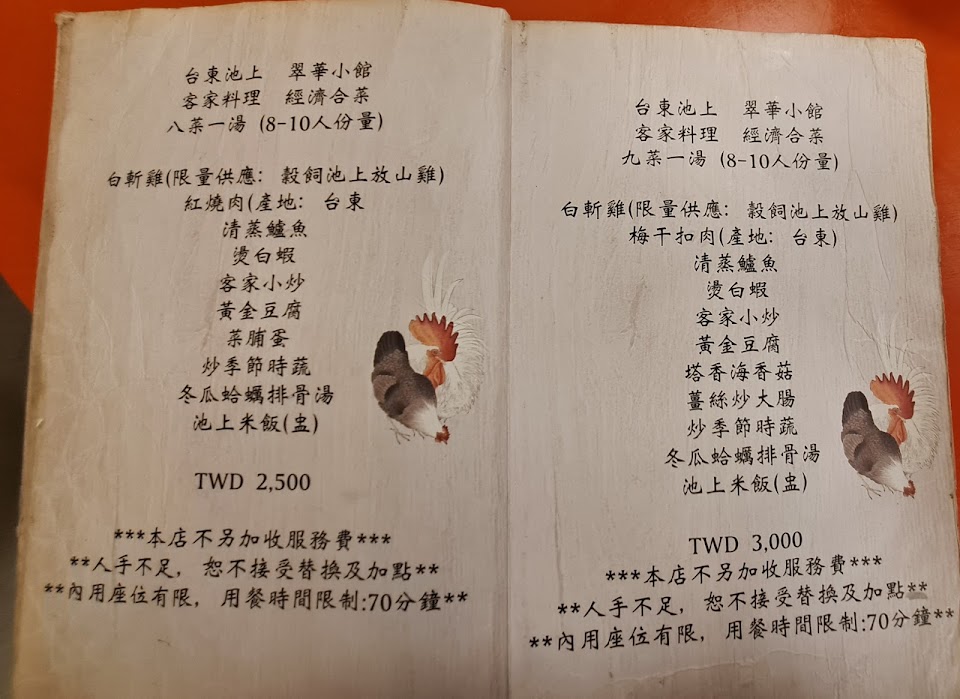 台東池上 翠華小館
客家料理 經濟合菜
八菜一湯 (8-10人份量)
白斬雞(限量供應: 穀飼池上放山雞)
紅燒肉(產地: 台東
清蒸鱸魚
燙白蝦
客家小炒
黃金豆腐
菜脯蛋
炒季節時蔬
冬瓜蛤蠣排骨湯
池上米飯(盅)
TWD 2,500
***本店不另加收服務費***
**人手不足, 恕不接受替換及加點**
**內用座位有限, 用餐時間限制:70分鐘**
台東池上 翠華小館
客家料理 經濟合菜
九菜一湯 (8-10人份量)
白斬雞(限量供應: 穀飼池上放山雞)
梅干扣肉(產地: 台東)
清蒸鱸魚
燙白蝦
客家小炒
黃金豆腐
塔香海香菇
薑絲炒大腸
炒季節時蔬
冬瓜蛤蠣排骨湯
池上米飯(盅)
TWD 3,000
***本店不另加收服務費***
**人手不足, 恕不接受替換及加點**
**內用座位有限, 用餐時間限制:70分鐘**